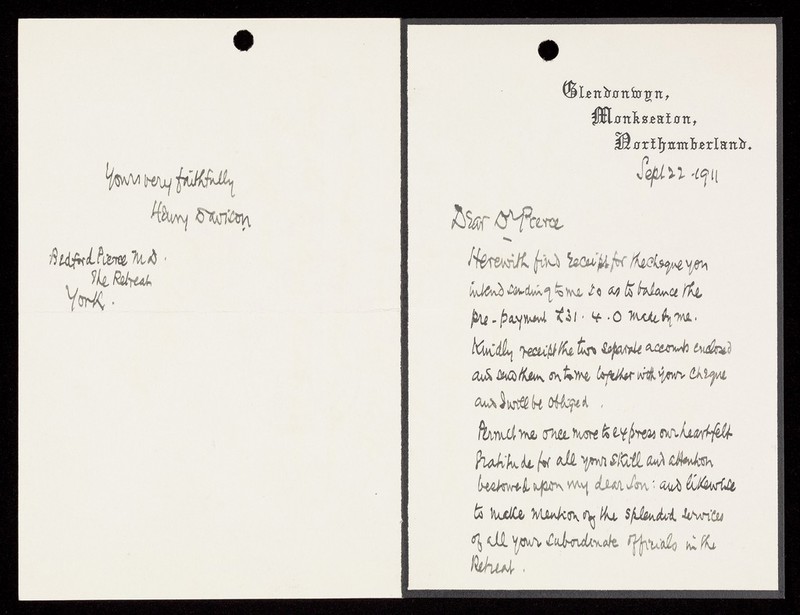 Glendonwyn,
Monkseaton,
Northumberland.
Sept 22 - 1911
Dear Dr Pierce
Herewith find Receipt for the cheque you
intend sending to me so as to balance the
pre-payment £31 . 4 . 0 made by me.
Kindly receipt the two separate accounts enclosed
and send them on to me together with your cheque
and I will be obliged .
Permit me once more to express our heartfelt
gratitude for all your skill and attention
bestowed upon my dear Son: and likewise
to make mention of the splendid services
of all your subordinate officials in the
Retreat .
Yours very faithfully
Henry Davison
Bedford Pierce M D .
The Retreat
York .